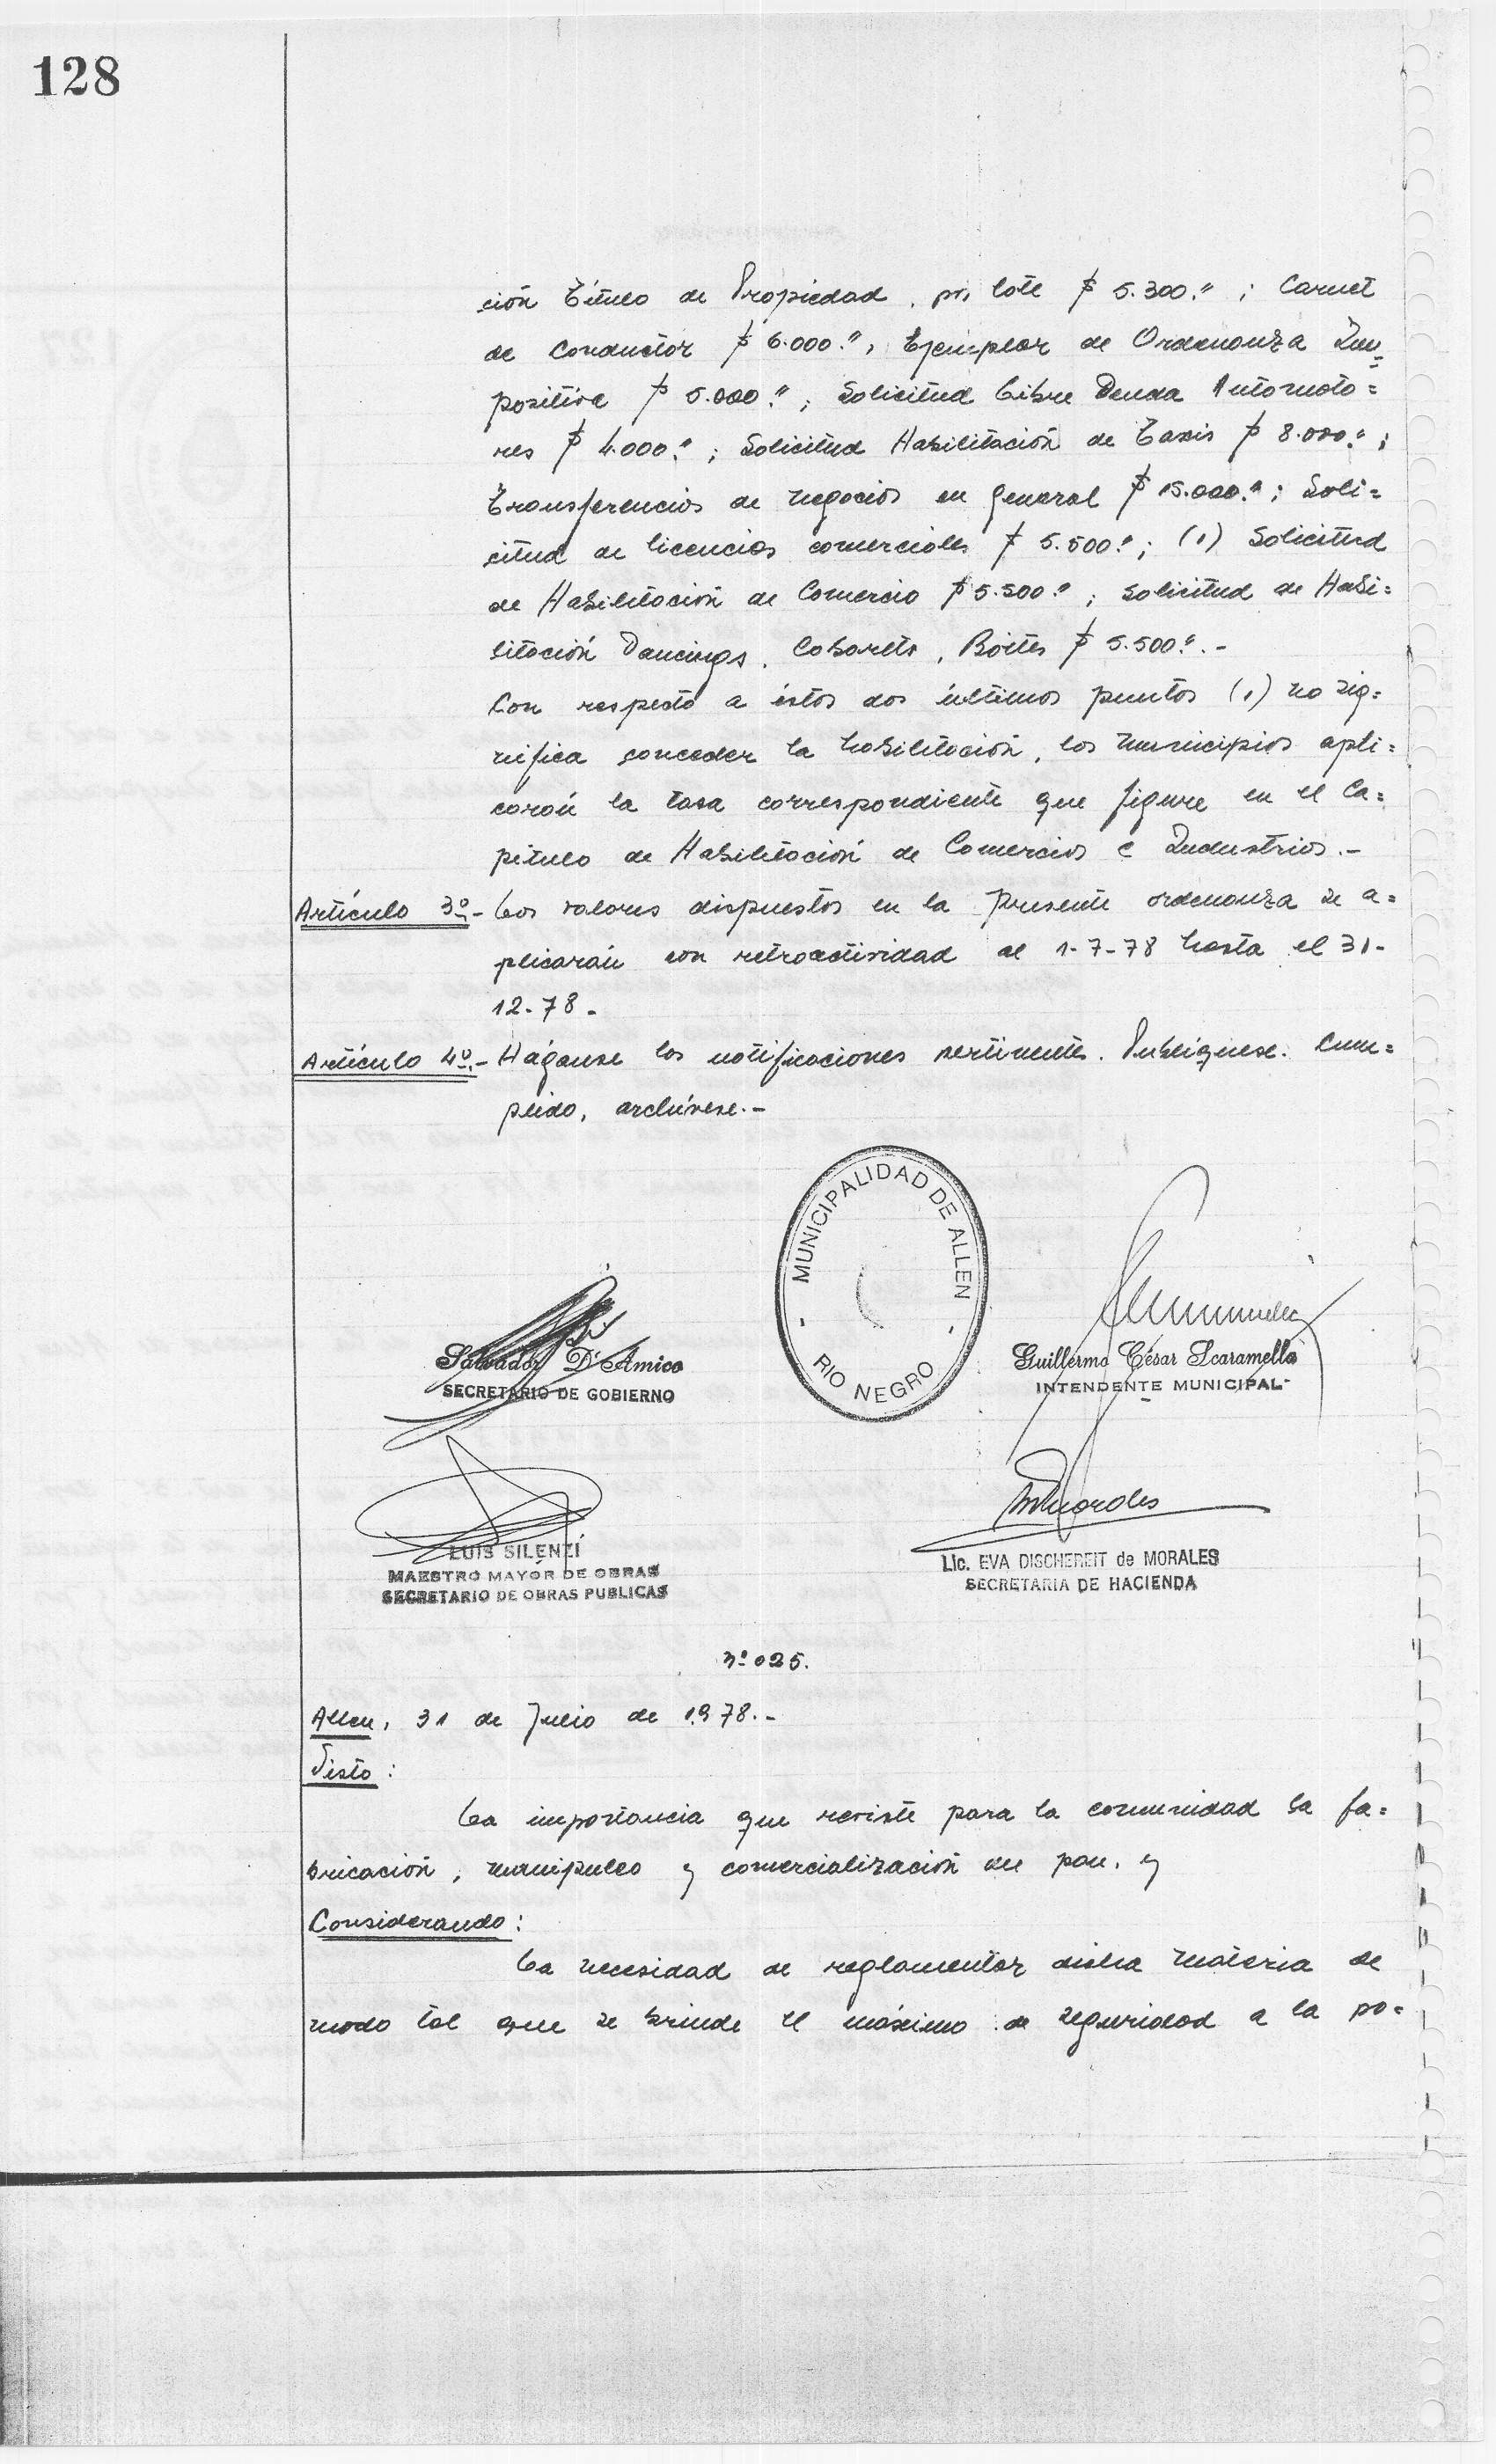 128
ción Título de Propiedad, por lote $ 5.300.=; Carnet
de Conductor $ 6.000.=, Ejemplar de Ordenanza Im=
positiva $ 5.000.=; Solicitud Libre Deuda Automoto=
res $ 4.000.=; Solicitud Habilitación de Taxis $ 8.000.=;
Transferencias de negocios en general $ 15.000.=; Soli=
citud de licencias comerciales $ 5.500.=; (1) Solicitud
de Habilitación de Comercio $ 5.500.=; Solicitud de Habi=
litación Dancings, Cabarets, Boites $ 5.500.=.-
Con respecto a éstos dos últimos puntos (1) no sig=
nifica conceder la habilitación, los Municipios apli=
carán la tasa correspondiente que figure en el Ca=
pítulo de Habilitación de Comercios e Industrias.-
Artículo 3º- Los valores dispuestos en la presente ordenanza se a=
plicarán con retroactividad al 1-7-78 hasta el 31-
12-78.
Artículo 4º.- Háganse las notificaciones pertinentes. Publíquese. Cum=
plido, archívese.-
MUNICIPALIDAD DE ALLEN
- RIO NEGRO -
Salvador D'Amico
SECRETARIO DE GOBIERNO
Guillermo César Scaramella
INTENDENTE MUNICIPAL
LUIS SILENZI
MAESTRO MAYOR DE OBRAS
SECRETARIO DE OBRAS PUBLICAS
Lic. EVA DISCHEREIT de MORALES
SECRETARIA DE HACIENDA
Nº 025.
Allen, 31 de Julio de 1978.-
Visto:
La importancia que reviste para la comunidad la fa=
bricación, manipuleo y comercialización del pan, y
Considerando:
La necesidad de reglamentar dicha materia de
modo tal que se brinde el máximo de seguridad a la po=